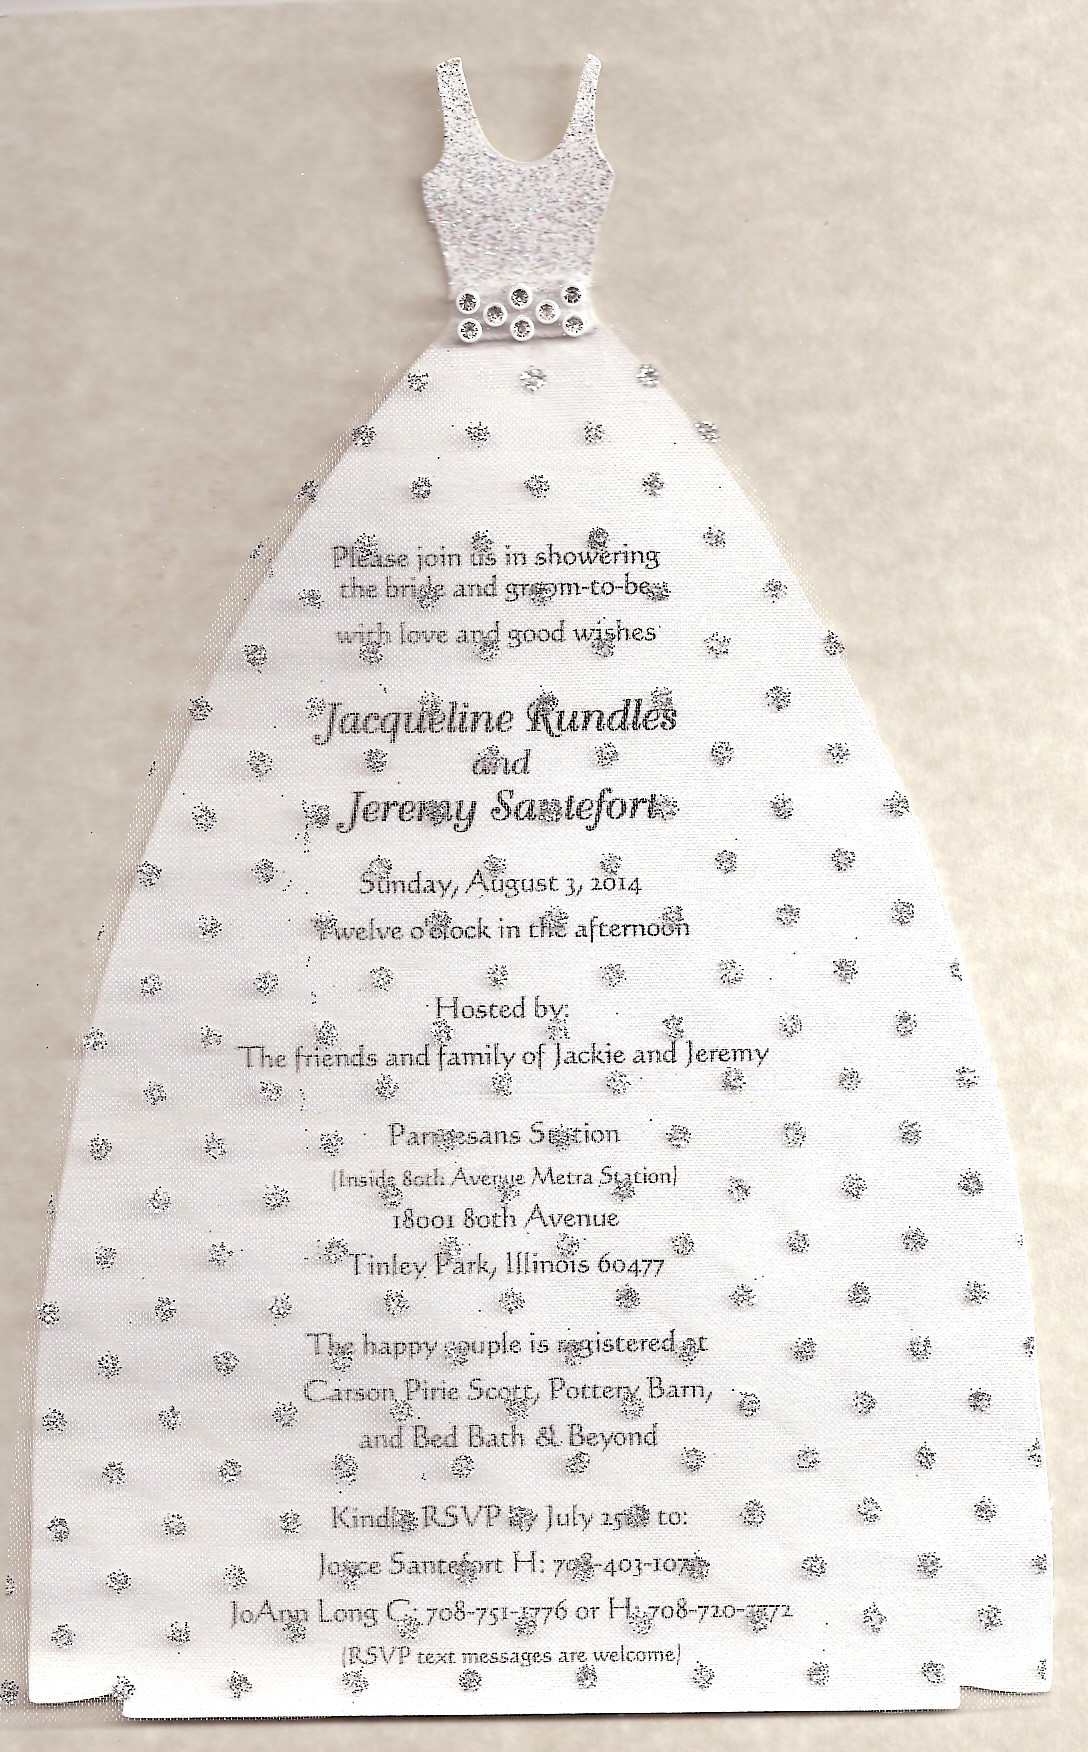 Please join us in showering
the bride and groom-to-be
with love and good wishes
Jacqueline Rundles
and
Jeremy Santefort
Sunday, August 3, 2014
Twelve o'clock in the afternoon
Hosted by:
The friends and family of Jackie and Jeremy
Parmesans Station
(Inside 80th Avenue Metra Station)
18001 80th Avenue
Tinley Park, Illinois 60477
The happy couple is registered at
Carson Pirie Scott, Pottery Barn,
and Bed Bath & Beyond
Kindly RSVP by July 25th to:
Joyce Santefort H:
JoAnn Long C: or H:
(RSVP text messages are welcome)